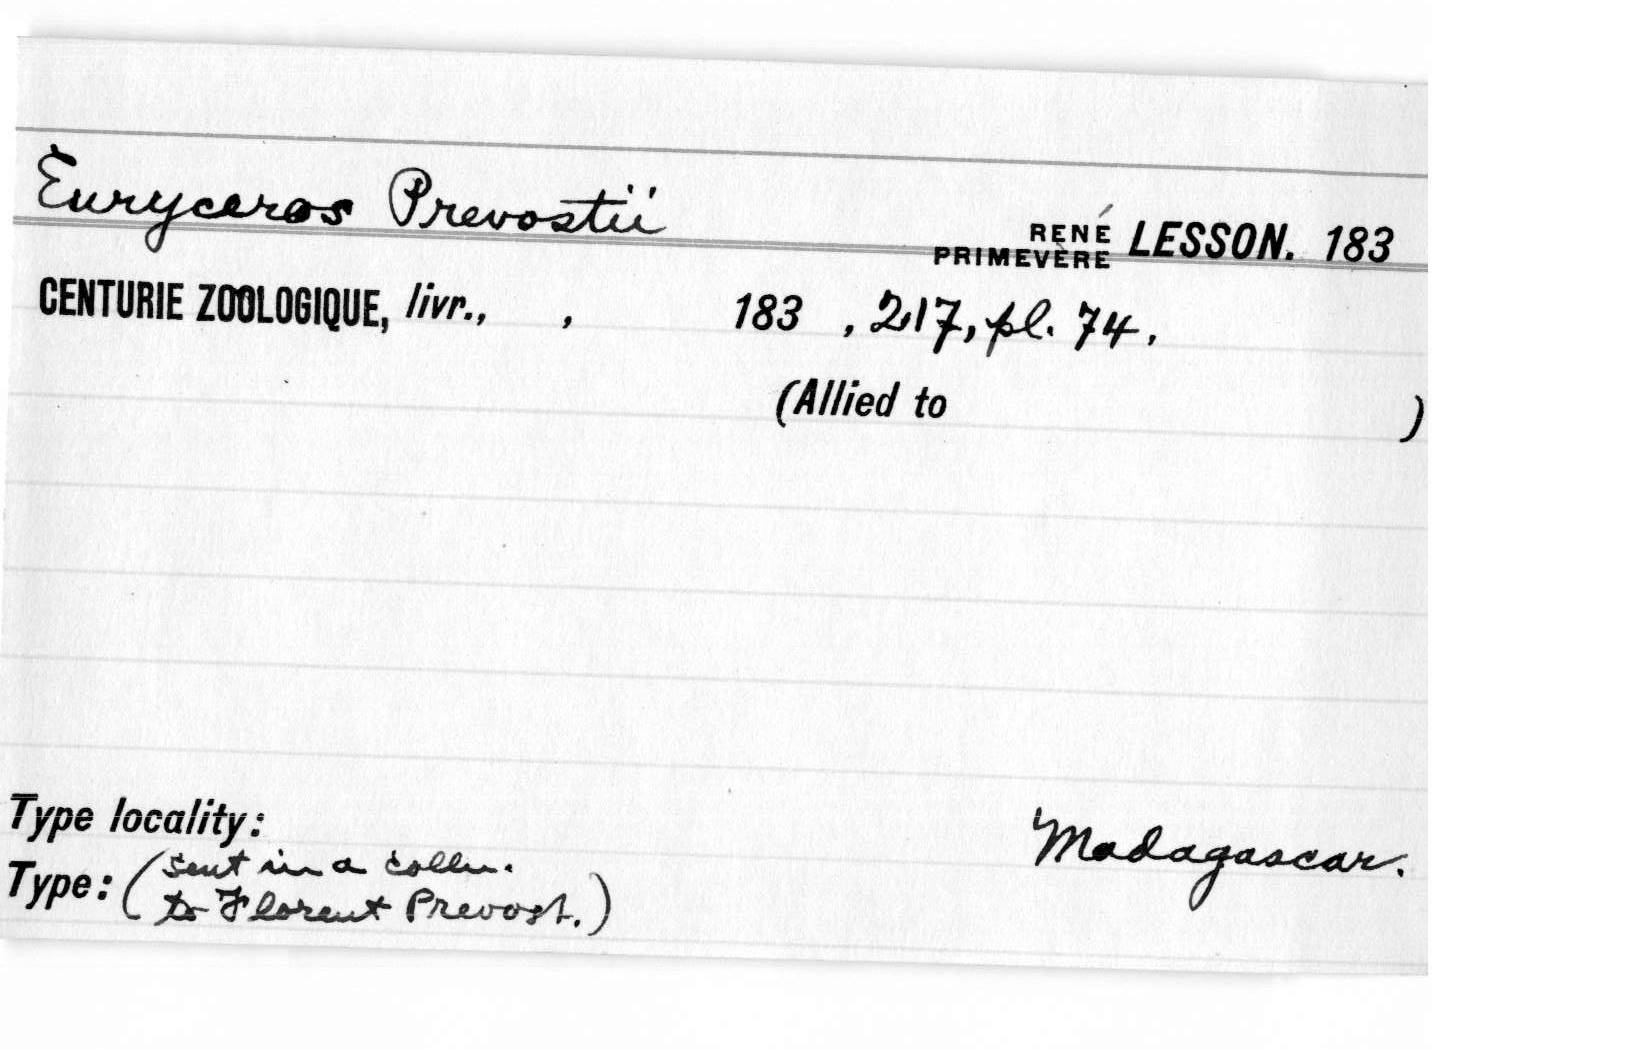 Euryceros Prevostii
RENÉ PRIMEVÈRE LESSON. 183
CENTURIE ZOOLOGIQUE, livr., , 183 , 217, pl. 74.
(Allied to )
Type locality: Madagascar.
Type: (sent in a colln.
to Florent Prevost.)